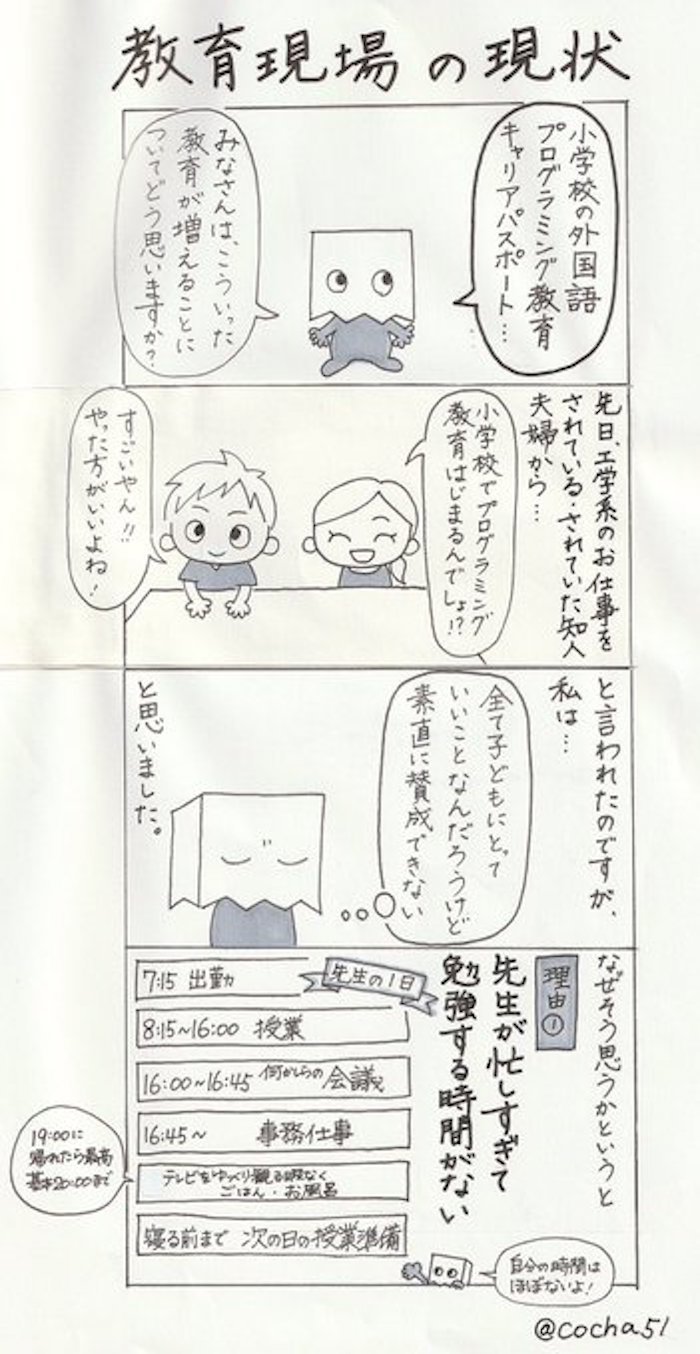 教育現場の現状
小学校の外国語
プログラミング教育
キャリアパスポート…
みなさんは、こういった
教育が増えることに
ついてどう思いますか?
先日、工学系のお仕事を
されている・されていた知人
夫婦から…
小学校でプログラミング
教育はじまるんでしょ!?
すごいやん!!
やった方がいいよね!
と言われたのですが、
私は…
全て子どもにとって
いいことなんだろうけど
素直に賛成できない
と思いました。
なぜそう思うかというと
理由①
先生が忙しすぎて
勉強する時間がない
先生の1日
7:15 出勤
8:15~16:00 授業
16:00~16:45 何かしらの会議
16:45~ 事務仕事
19:00に
帰れたら最高
基本20:00まで
テレビをゆっくり観る暇なく
ごはん・お風呂
寝る前まで 次の日の授業準備
自分の時間は
ほぼないよ!
@cocha51